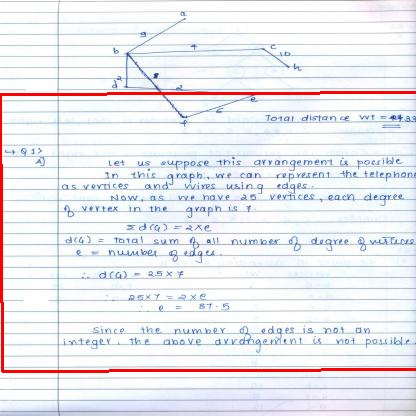 a
9
b
4
c
10
h
d
2
2
e
f
6
Total distance wt =
→ Q1>
A]
Let us suppose this arrangement is possible
In this graph, we can represent the telephone
as vertices and wires using edges.
Now, as we have 25 vertices, each degree
of vertex in the graph is 7.
Σd(G) = 2×e
d(G) = Total sum of all number of degree of vertices
e = number of edges.
∴ d(G) = 25×7
∴ 25×7 = 2×e
∴ e = 87.5
Since the number of edges is not an
integer. the above arrangement is not possible.